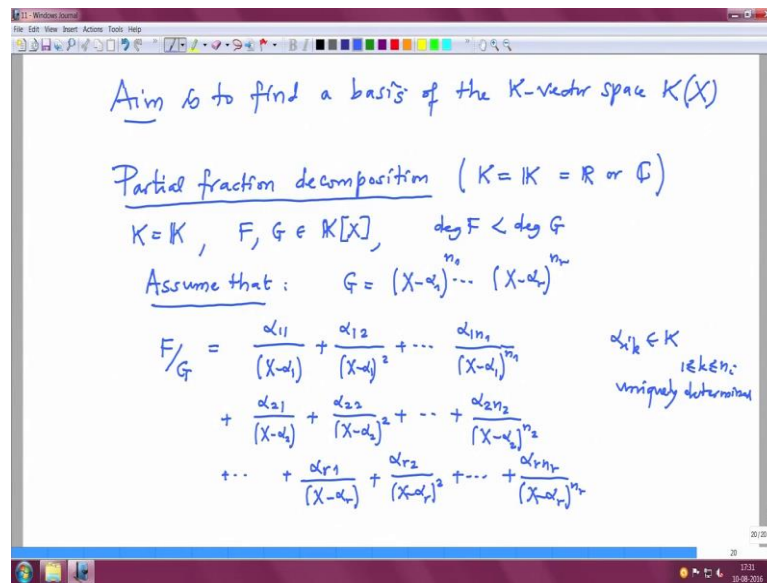 11 - Windows Journal
File Edit View Insert Actions Tools Help
Aim is to find a basis of the K-vector space K(X)
Partial fraction decomposition ( K = 𝕂 = ℝ or ℂ )
K = 𝕂 , F, G ∈ 𝕂[X], deg F < deg G
Assume that : G = (X-α₁)^{n₁} ... (X-αᵣ)^{nᵣ}
F/G = α₁₁/(X-α₁) + α₁₂/(X-α₁)² + ... α_{1n₁}/(X-α₁)^{n₁} α_{ik} ∈ K
1≤k≤nᵢ
uniquely determined
+ α₂₁/(X-α₂) + α₂₂/(X-α₂)² + ·· + α_{2n₂}/(X-α₂)^{n₂}
+ ·· + α_{r1}/(X-αᵣ) + α_{r2}/(X-αᵣ)² + ... + α_{rnᵣ}/(X-αᵣ)^{nᵣ}
20/20
20
17:31
10-08-2016